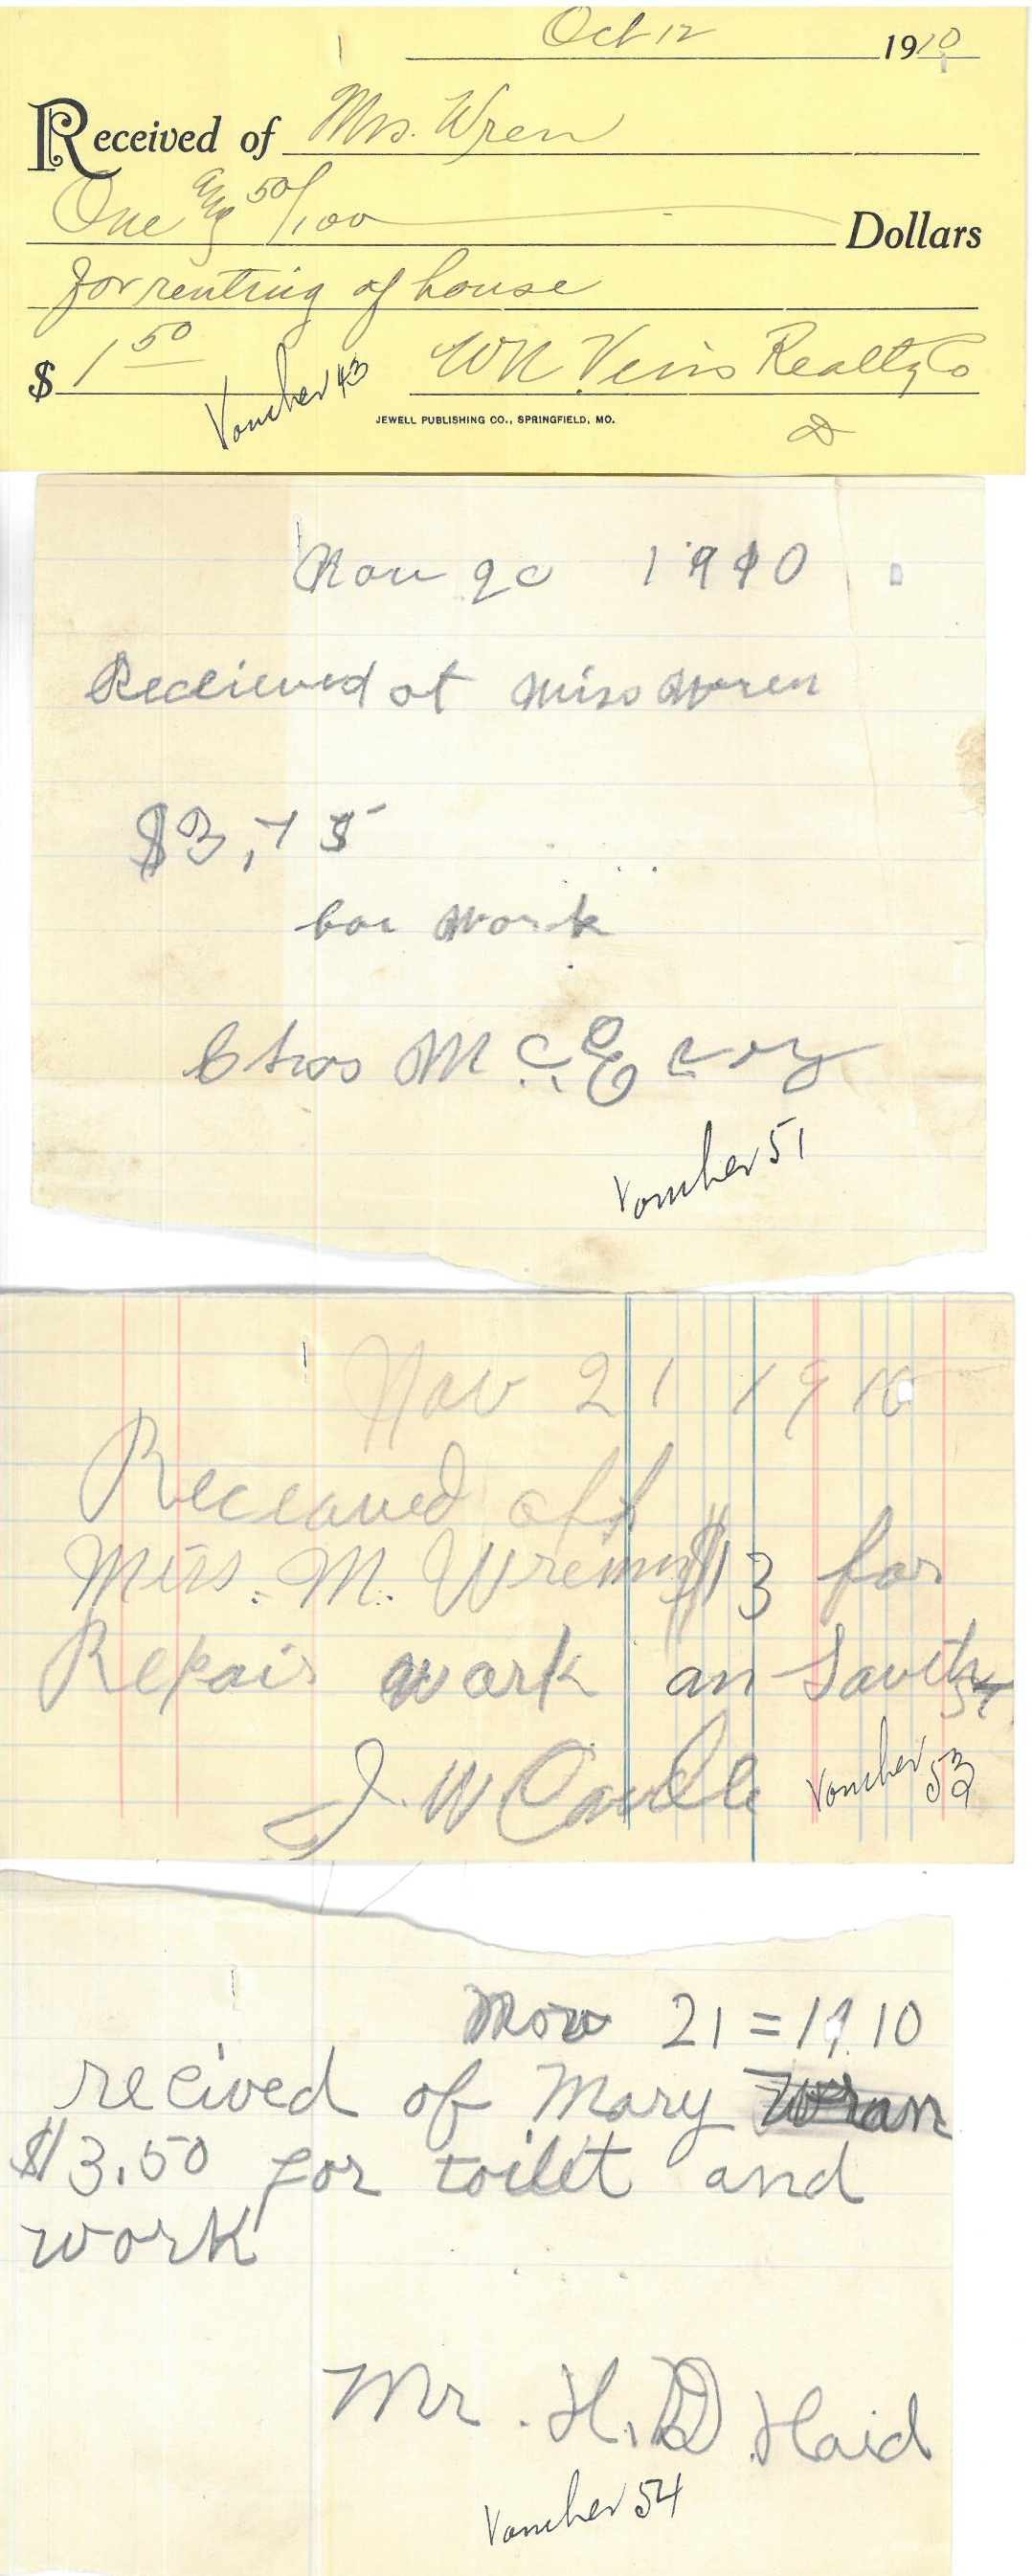 Oct 12 1910
Received of Mrs. Wren
One and 50/100 Dollars
for renting of house
$ 1 50 W N. Realty Co
Voucher 43
JEWELL PUBLISHING CO., SPRINGFIELD, MO.
Nov 20 1910
Recieved of Miss Wren
$3,75
for work
Chas McEvoy
Voucher 51
Nov 21 1910
Received off
Miss. M. Wrenn $13 for
Repair work an St
J. W Caudle Voucher 53
Nov 21 = 1910
recived of Mary Wran
$3.50 for toilet and
work
Mr. H. D. Haid
Voucher 54